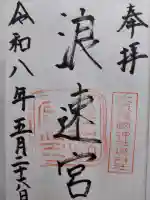 奉拝
浪速宮
令和八年五月二十八日